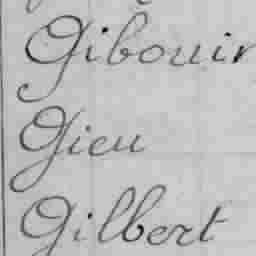 Gibouin
Gieu
Gilbert